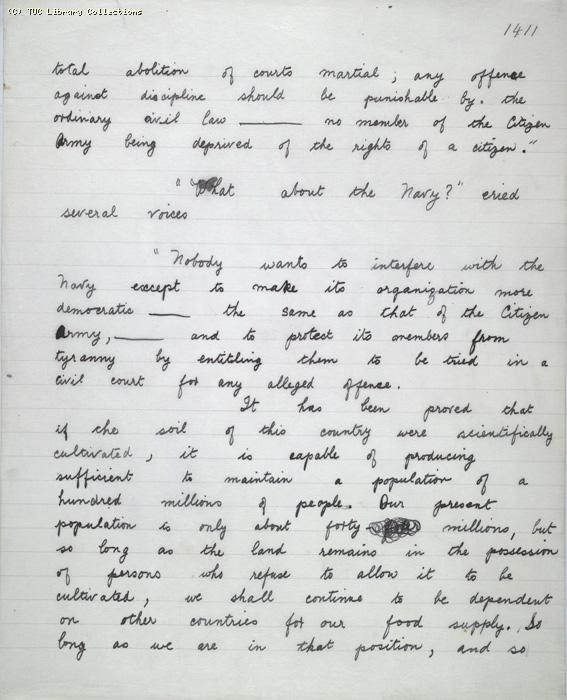 (C) TUC Library Collections
1411
total abolition of courts martial; any offence
against discipline should be punishable by. the
ordinary civil law ——— no member of the Citizen
Army being deprived of the rights of a citizen."
"What about the Navy?" cried
several voices
"Nobody wants to interfere with the
Navy except to make its organization more
democratic —— the same as that of the Citizen
Army, —— and to protect its members from
tyranny by entitling them to be tried in a
civil court for any alleged offence.
It has been proved that
if the soil of this country were scientifically
cultivated, it is capable of producing
sufficient to maintain a population of a
hundred millions of people. Our present
population is only about forty millions, but
so long as the land remains in the possession
of persons who refuse to allow it to be
cultivated, we shall continue to be dependent
on other countries for our food supply. So
long as we are in that position, and so